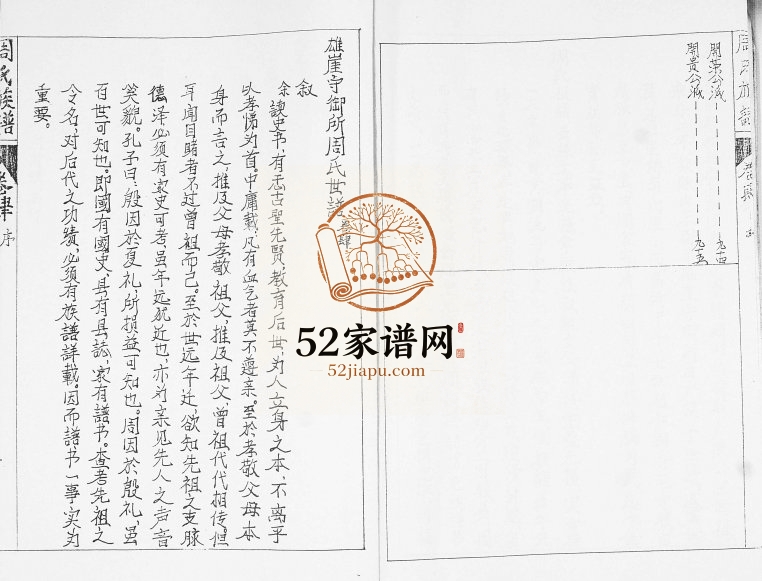 周氏族谱
開第公派————————九十四
開貴公派————————九十五
雄崖守御所周氏世譜
叙
余読史书,有志古聖先賢,教育后世,为人立身之本,不离乎
以孝悌为首。中庸載,凡有血气者莫不遵亲。至於孝敬父母本
身而言之,推及父母孝敬祖父,推及祖父,曾祖代代相传。但
耳闻目睹者不过曾祖而已。至於世远年迁,欲知先祖之支脉
德泽必须有家史可考,虽年远犹近也,亦如亲见先人之声音
笑貌。孔子曰:殷因於夏礼,所損益可知也。周因於殷礼,虽
百世可知也。即國有國史,县有县誌,家有譜书。查考先祖之
令名,对后代之功績,必須有族譜詳載。因而譜书一事实为
重要。
周氏族譜
卷肆
序
52家谱网
52jiapu.com